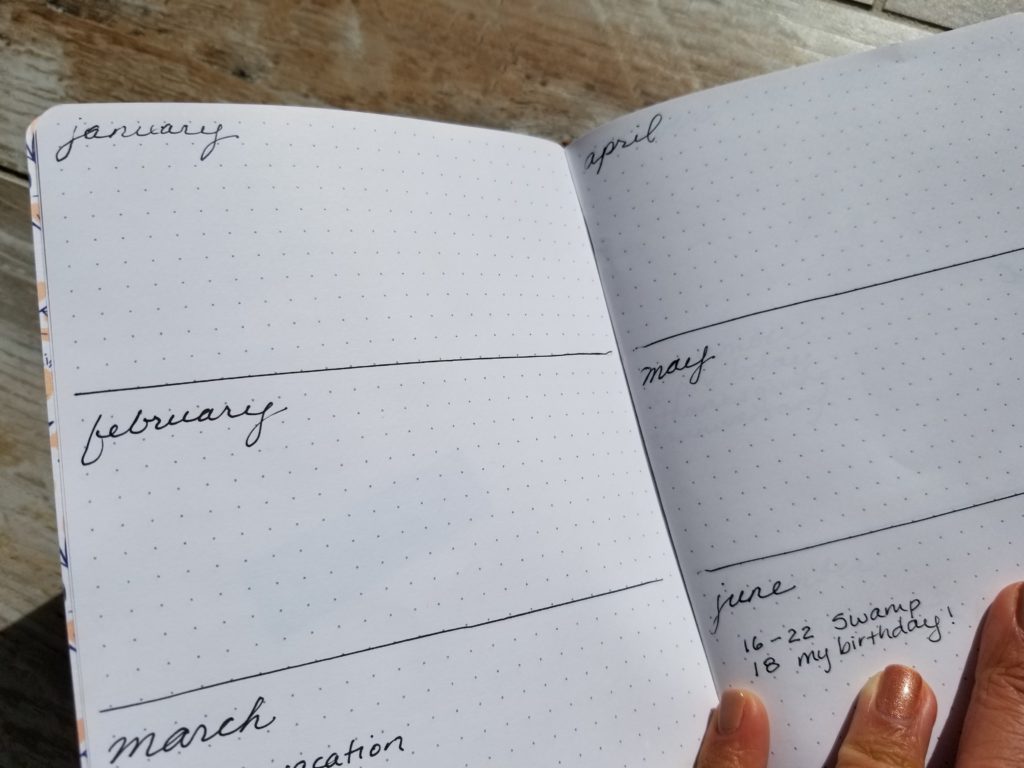 january
february
march
april
may
june
16-22 Swamp
18 my birthday!